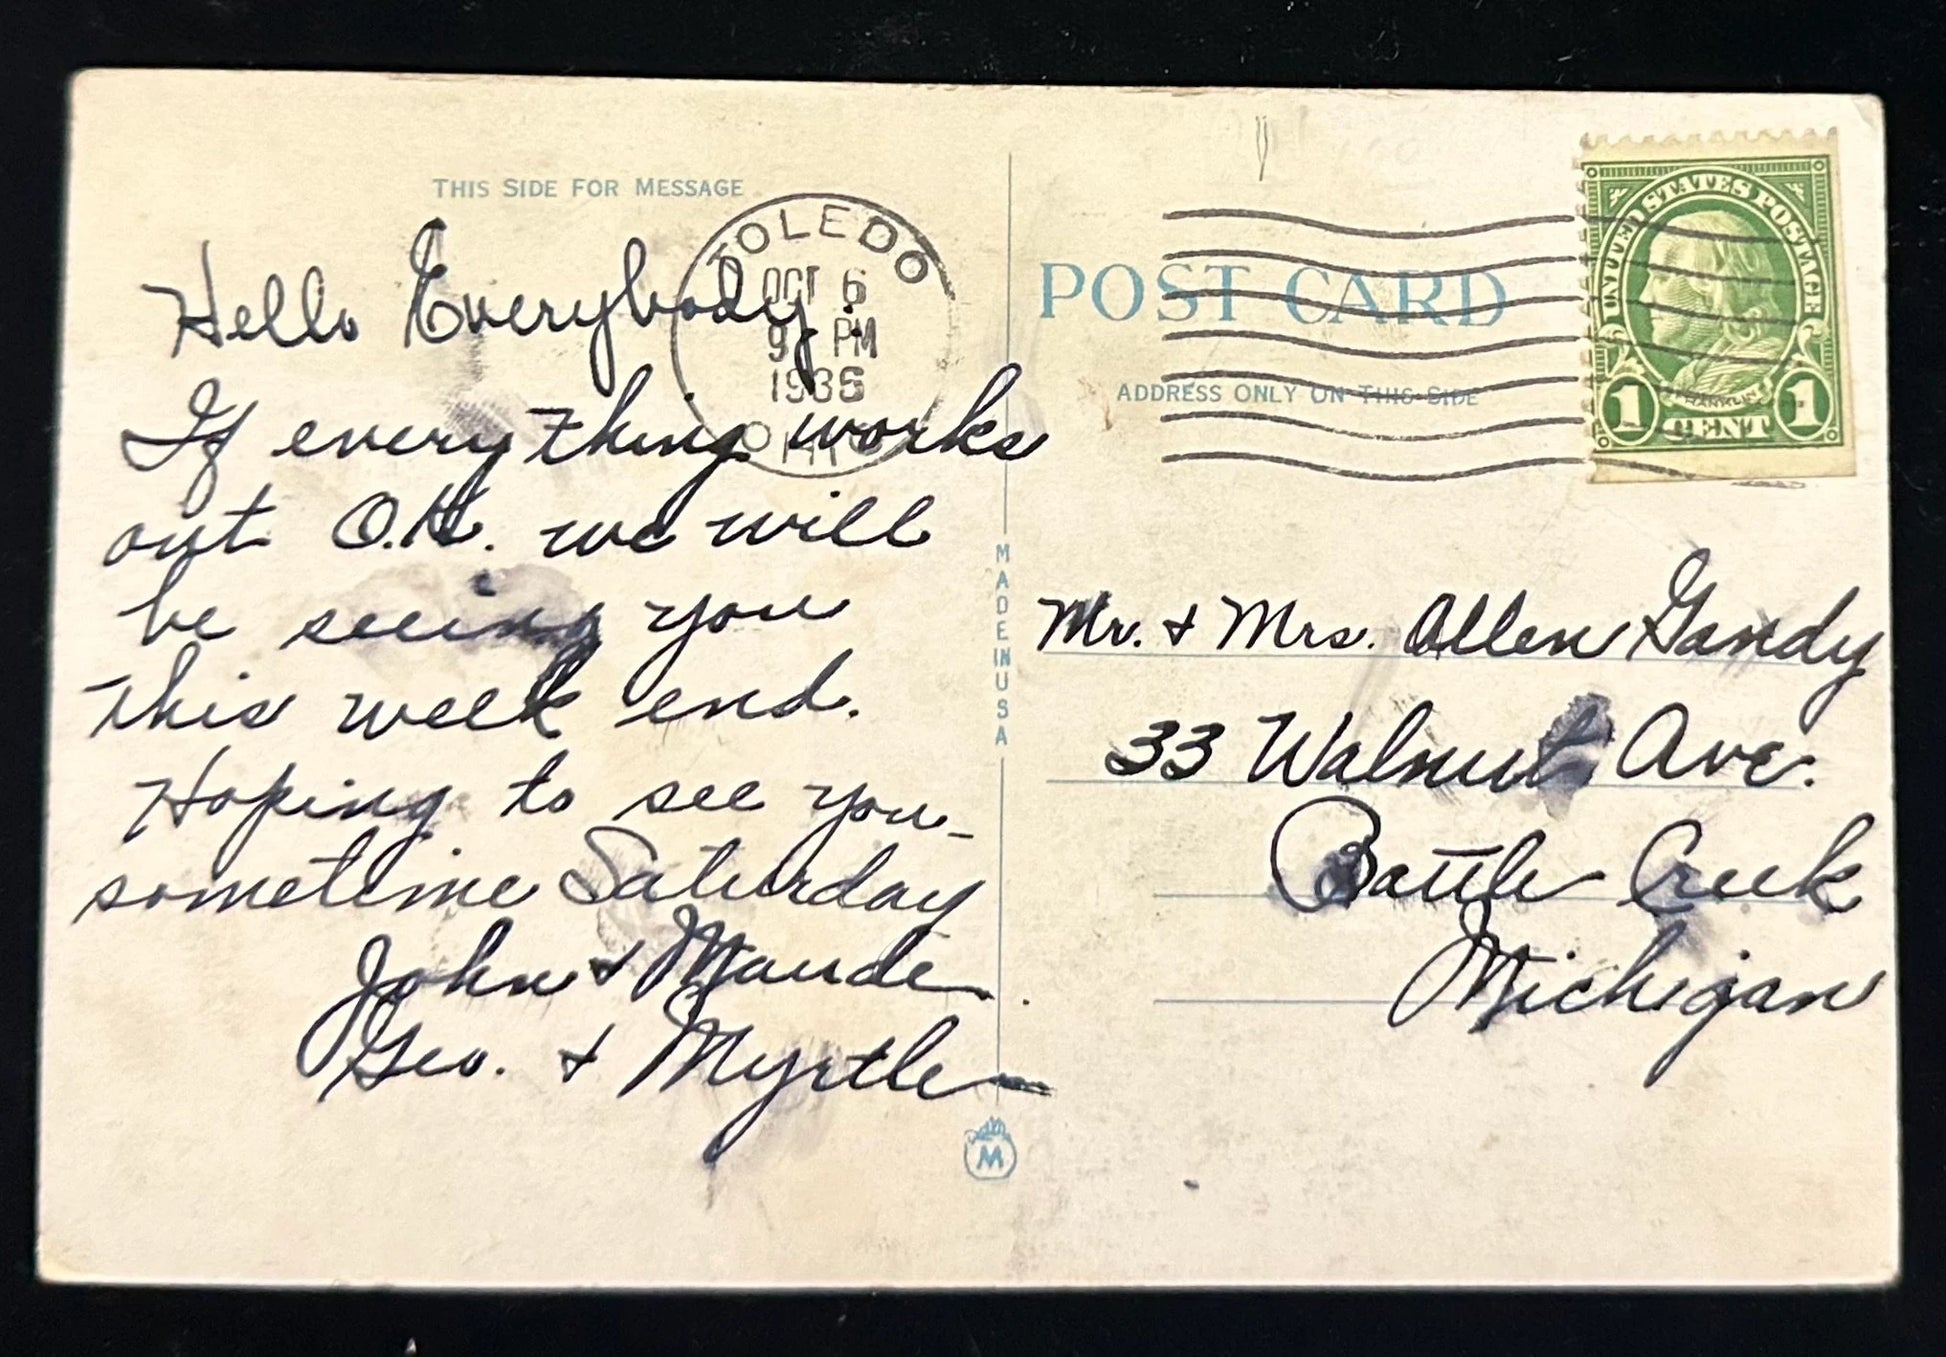 THIS SIDE FOR MESSAGE
TOLEDO
OCT 6
9 PM
1936
OHIO
Hello Everybody:
If everything works
out O.K. we will
be seeing you
this week end.
Hoping to see you
sometime Saturday
John + Maude
Geo. + Myrtle
MADE IN USA
M
POST CARD
ADDRESS ONLY ON THIS SIDE
UNITED STATES POSTAGE
FRANKLIN
1 CENT 1
Mr. + Mrs. Allen Gandy
33 Walnut Ave.
Battle Creek
Michigan